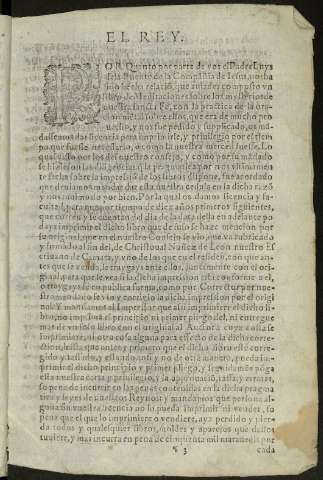 EL REY.
POR Quanto por parte de vos el Padre Luys
de la Puente de la Compañia de Iesus, nos ha
sido fecha relacion, que auiades compuesto vn
libro de Meditaciones sobre los mysterios de
nuestra sancta Fe, con la practica de la ora-
cion mental sobre ellos, que era de mucho pro-
uecho, y nos fue pedido y suplicado, os mã-
dassemos dar licencia para imprimirle, y priuilegio por el tiem
po que fuesse necessario, o como la nuestra merced fuesse. Lo
qual visto por los del nuestro consejo, y como por su mandado
se hizieron las diligencias que la prematica por nos vltimamen
te fecha sobre la impression de los libros dispone, fue acordado
que deuiamos mandar dar esta nuestra cedula en la dicha razõ
y nos tuuimoslo por bien. Por la qual os damos licencia y fa-
cultad, para que por tiempo de diez años primeros siguientes,
que corren y se cuentan del dia de la data desta en adelante po
days imprimir el dicho libro que de suso se haze mencion por
su original, que en el nuestro Consejo se vio, que va rubricado
y firmado al fin del, de Christoual Nuñez de Leon nuestro Es
criuano de Camara, y vno de los que en el residen, con que an-
tes que se venda, le traygays ante ellos, juntamente con el ori-
ginal, para que se vea si la dicha impression esta conforme a el,
o traygays fe en publica forma, como por Corretor por nue-
stro mandado se vio y corrigio la dicha impression por el origi
nal. Y mandamos al impressor que assi imprimiere el dicho li-
bro, no imprima el principio ni primer pliego del, ni entregue
mas de vn solo libro con el original al Auctor a cuya costa se
imprimiere, ni otra cosa alguna para effecto de la dicha corre-
cion, hasta que antes y primero que el dicho libro este corre-
gido y tassado, y estando assi, y no de otra manera, pueda im-
primir el dicho principio y primer pliego, y seguidamente põga
esta nuestra carta y priuilegio, y la aprouacion, tassa y erratas,
so pena de incurrir en las penas contenidas en la dicha pragma
tica y leyes de nuestros Reynos: y mandamos que persona al-
guna sin vuestra licencia no lo pueda imprimir ni vender, so
pena que el que lo imprimiere o vendiere, aya perdido y pier-
da todos y qualesquier libros, moldes y aparejos que dellos
tuuiere, y mas incurra en pena de cinquenta mil marauedis por
¶ 3 cada